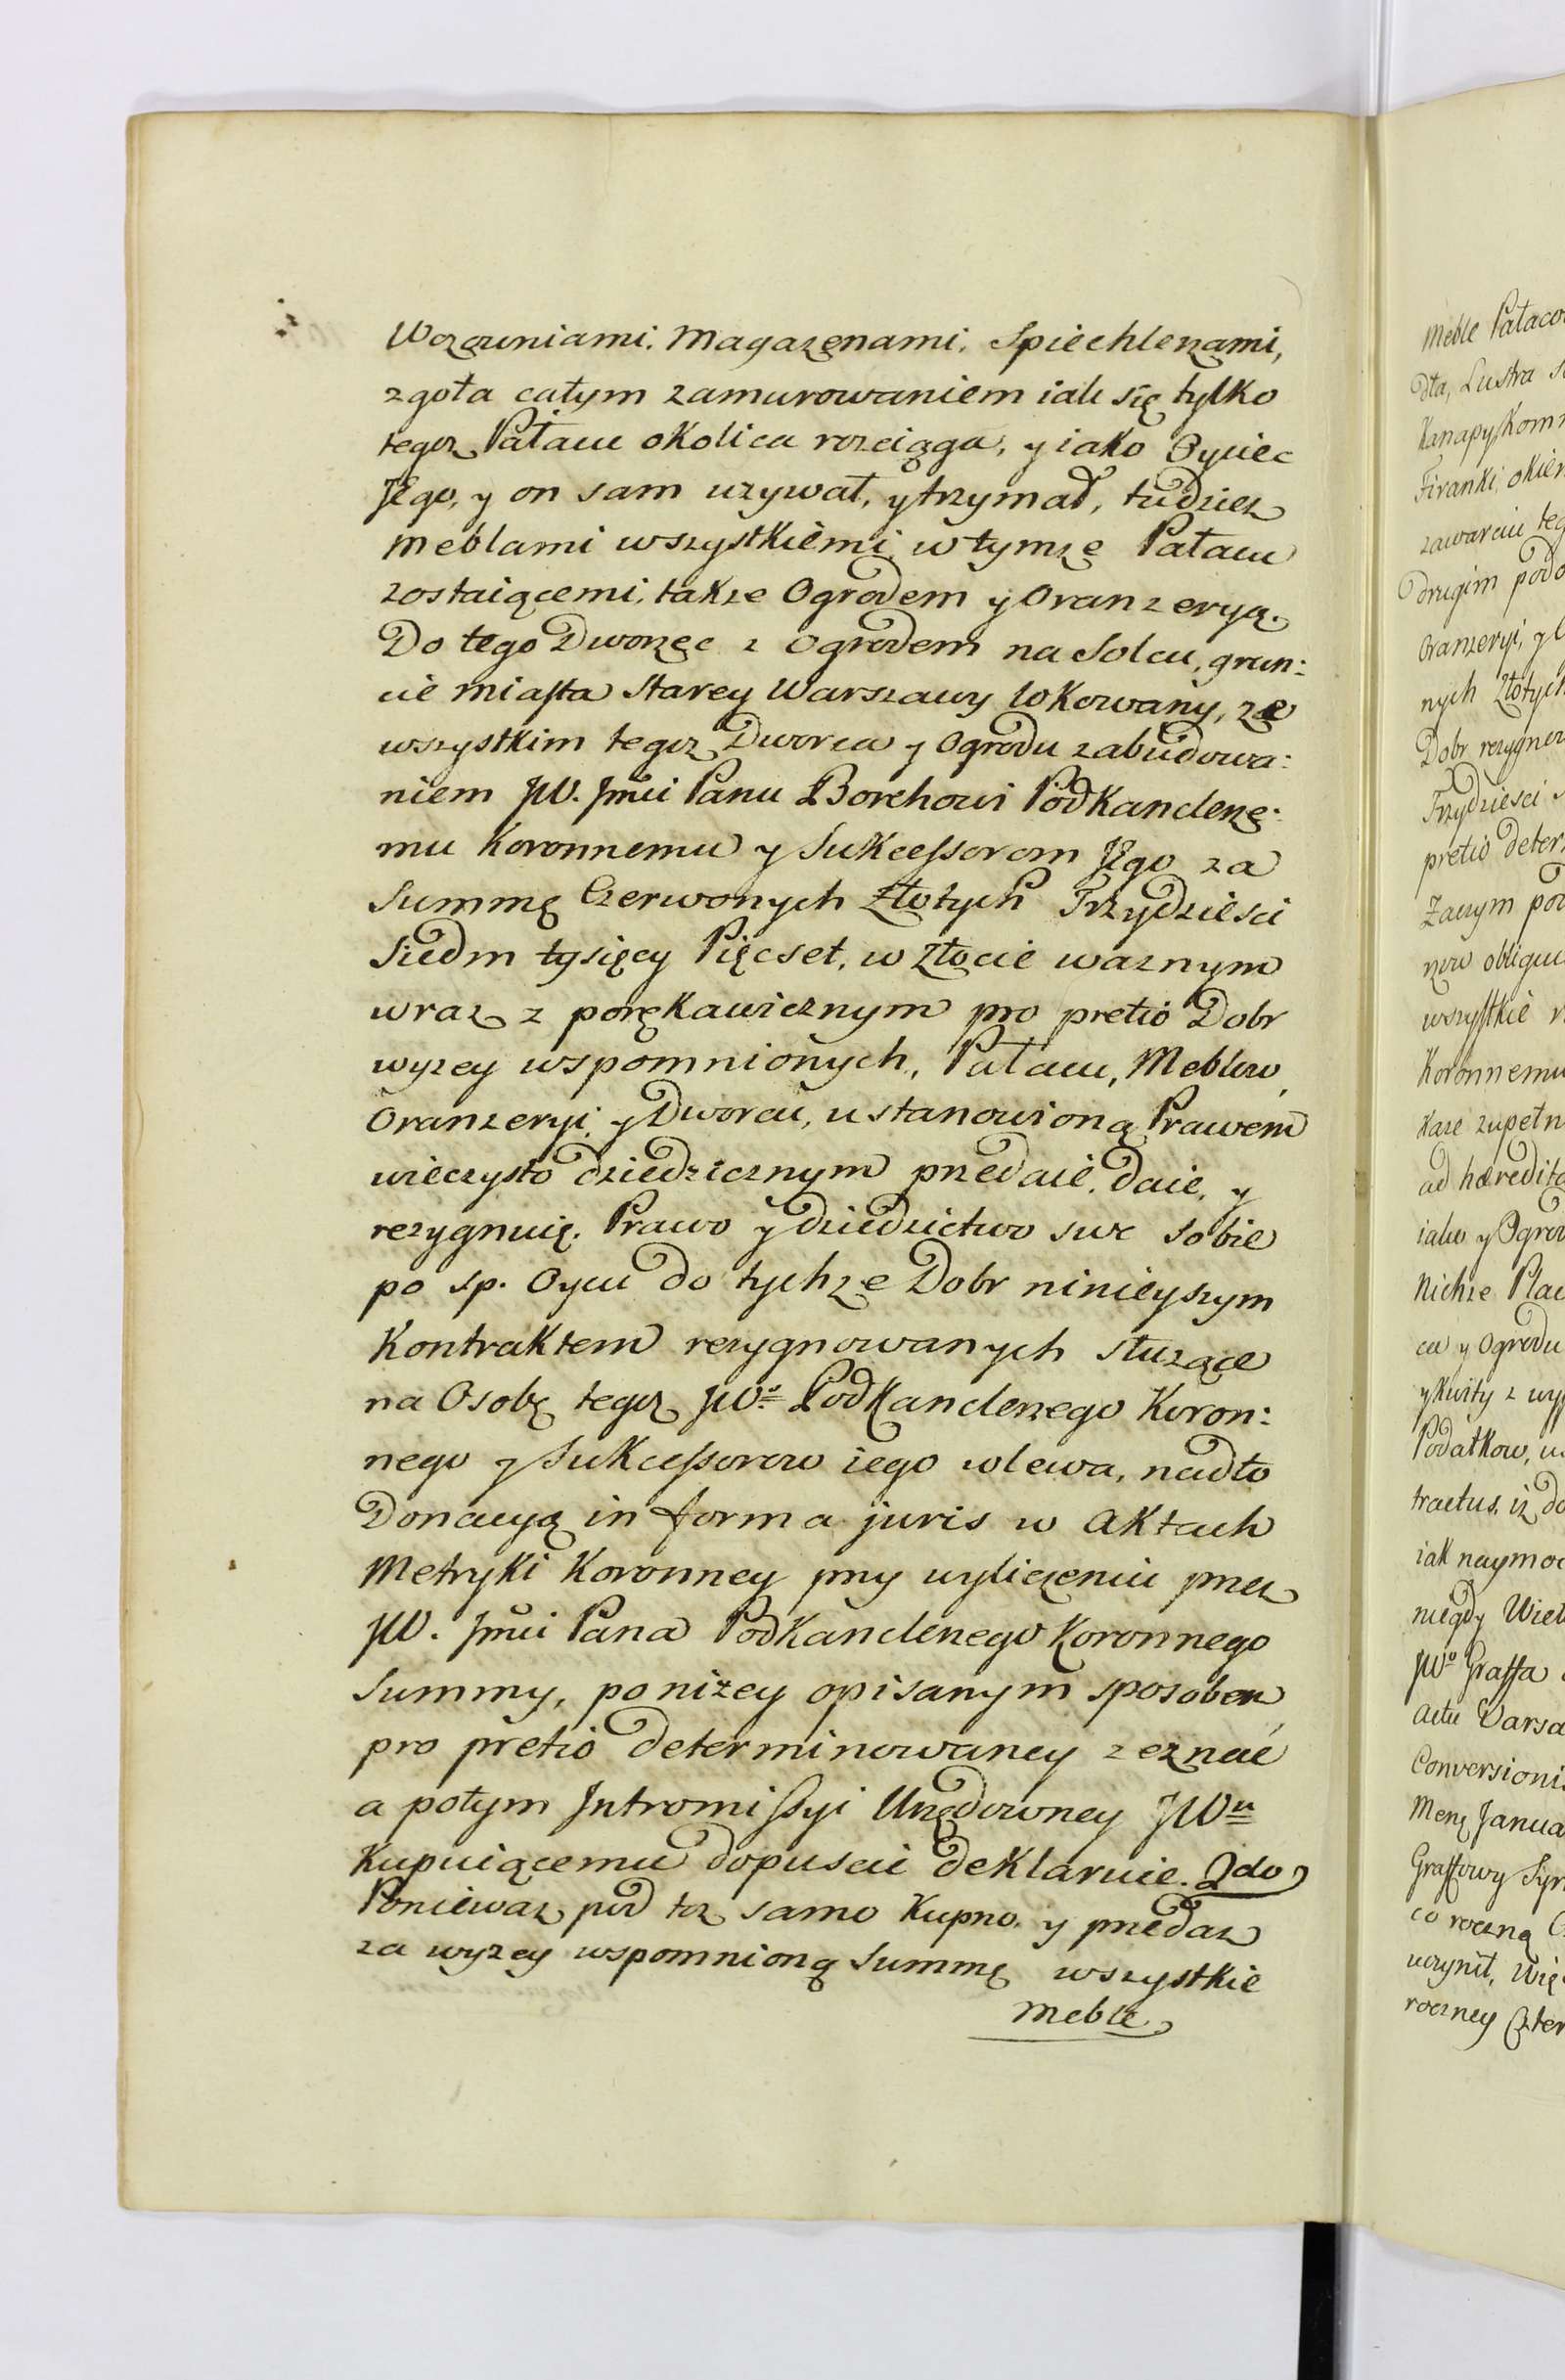 Wozowniami, Magazenami, Spiechlerzami,
zgoła całym zamurowaniem iak się tylko
tegoz Pałacu okolica rozciąga, y iako Oyciec
Jego, y on sam uzywał, y trzymał, tudziesz
meblami wszystkiemi w tymze Pałacu
zostaiącemi, takze Ogrodem y Oranzeryą.
Do tego Dworzec z Ogrodem na Solcu, grun:
cie miasta Starey Warszawy lokowany, ze
wszystkim tegoz Dworca y Ogrodu zabudowa:
niem JW. Jmći Panu Borchowi Podkanclerze:
mu Koronnemu y Sukcessorom Jego za
Summę Czerwonych Złotych Trzydziesci
Siedm tysięcy Pięcset, w Złocie waznym
wraz z porękawicznym pro pretio Dobr
wyzey wspomnionych, Pałacu, Meblow,
Oranzeryi y Dworcu, ustanowioną Prawem
wieczysto dziedzicznym przedaie, daie, y
rezygnuię. Prawo y dziedzictwo swe sobie
po sp. Oycu do tychze Dobr ninieyszym
Kontraktem rezygnowanych słuzące
na Osobę tegoz JWo Podkanclerzego Koron:
nego y Sukcessorow iego wlewa, nadto
Donacyą in forma juris w Aktach
Metryki Koronney przy wyliczeniu przez
JW. Jmći Pana Podkanclerzego Koronnego
Summy, ponizey opisanym sposobem
pro pretio determinowaney zeznać
a potym Intromissyi Urzędowney JWu
Kupuiącemu dopuscić deklaruie. 2do
Poniewaz pod toz samo Kupno, y przedaz
za wyzey wspomnioną Summę wszystkie
Meble
Meble Pałaco
dła, Lustra
Kanapy, Kom
Firanki, okien
zawarciu teg
drugim podo
Oranzeryi, y
nych Złotych
Dobr rezygno
Trzydziesci
pretio deter
Zaczym pod
rzow obligu
wszystkie
Koronnemu
Kaze zupełn
ad hæredita
iako y Ogrod
Nichze Plac
ca y Ogrodu
y kwity z wyp
Podatkow, u
tractus, iz do
iak naymoc
niegdy Wiel
JWo Graffa
Actu Varsa
Conversionis
Menę Janua
Graffowy Syr
co roczną
uczynił, Wię
roczney Czter